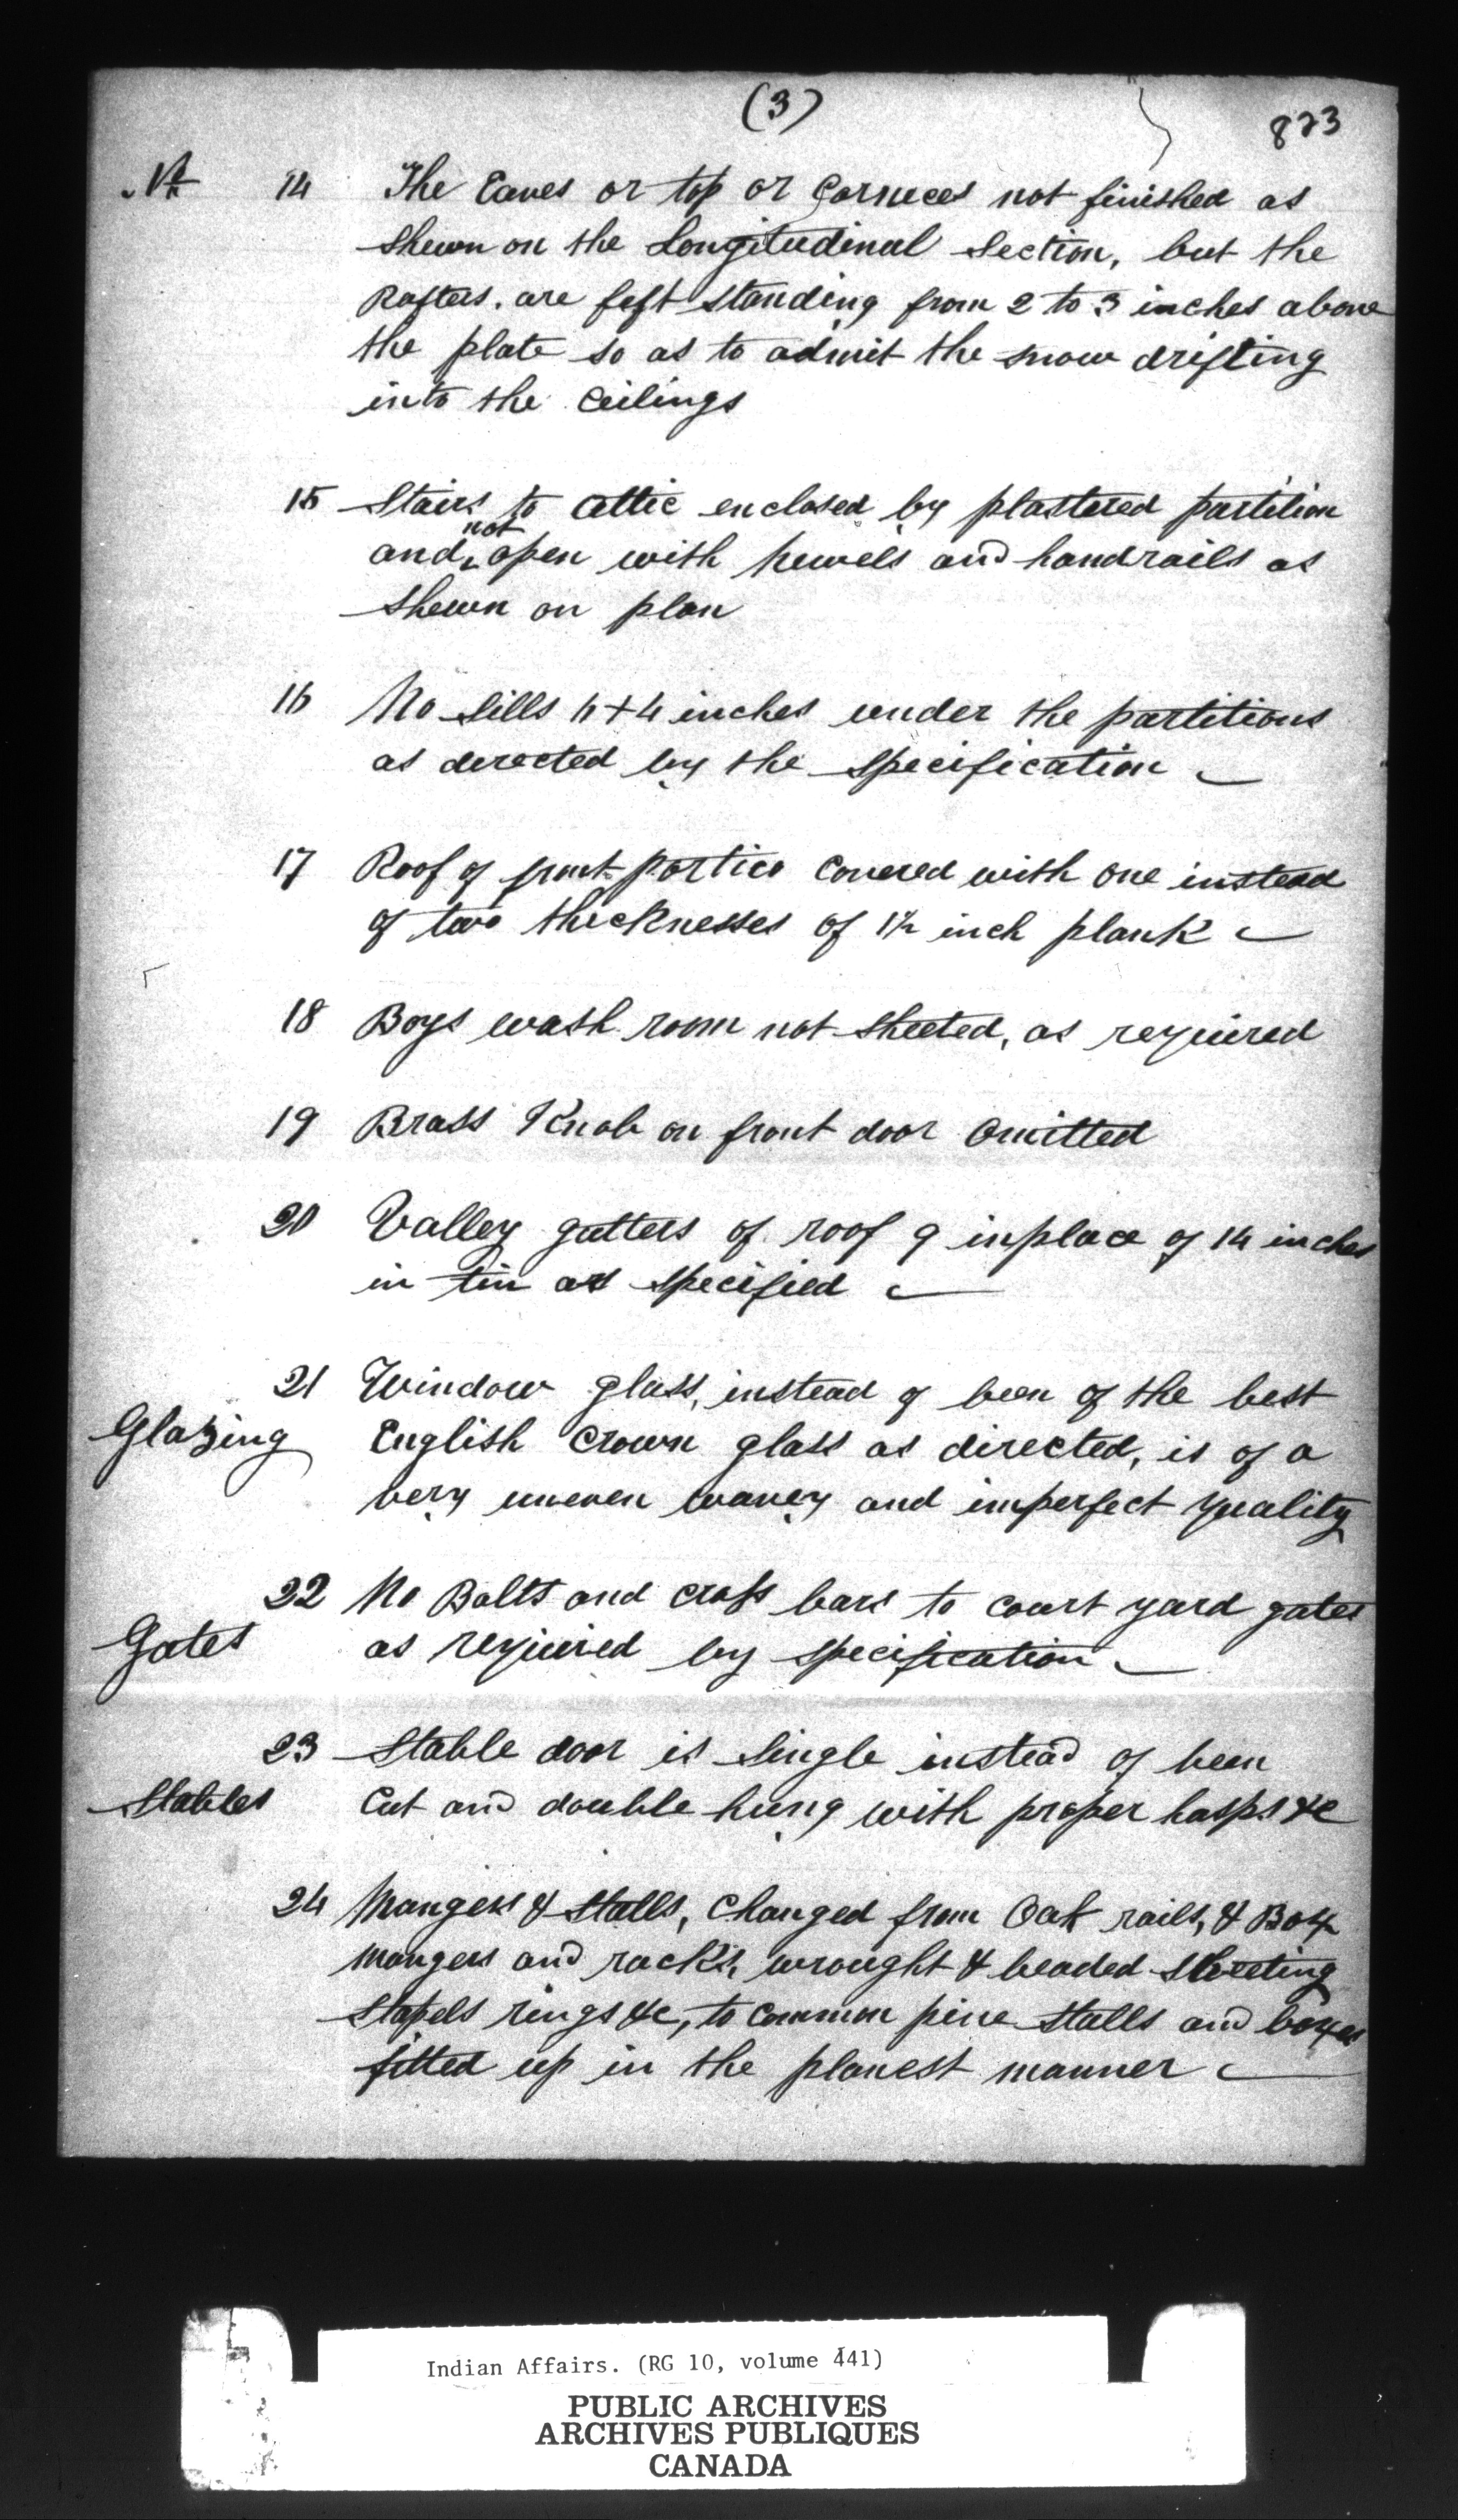 (3)
873
No 14 The Eaves or top or Corneces not finished as
shewn on the Longitudinal Section, but the
Rafters. are left standing from 2 to 3 inches above
the plate so as to admit the snow drifting
into the Ceilings
15 Stairs to attic enclosed by plastered partition
not
and open with newels and handrails as
shewn on plan
16 No Sills 4 + 4 inches under the partitions
as derected by the specification
17 Roof of front portico Covered with one instead
of two thicknesses of 1½ inch plank
18 Boys wash room not sheeted, as required
19 Brass Knob on front door Omitted
20 Valley gutters of roof 9 inplace of 14 inches
in tin as specified
21 Window glass, instead of been of the best
Glazing English Crown glass as directed, is of a
very uneven wavey and imperfect quality
22 No Bolts and cross bars to court yard gates
Gates as required by specification
23 Stable door is Single instead of been
Stables Cut and double hung with proper hasps &c
24 Mangers & Stalls, Changed from Oak rails, & Box
mangers and racks, wrought & beaded sheeting
Stapels rings &c, to Common pine Stalls and boxes
fitted up in the planest manner
Indian Affairs. (RG 10, volume 441)
PUBLIC ARCHIVES
ARCHIVES PUBLIQUES
CANADA